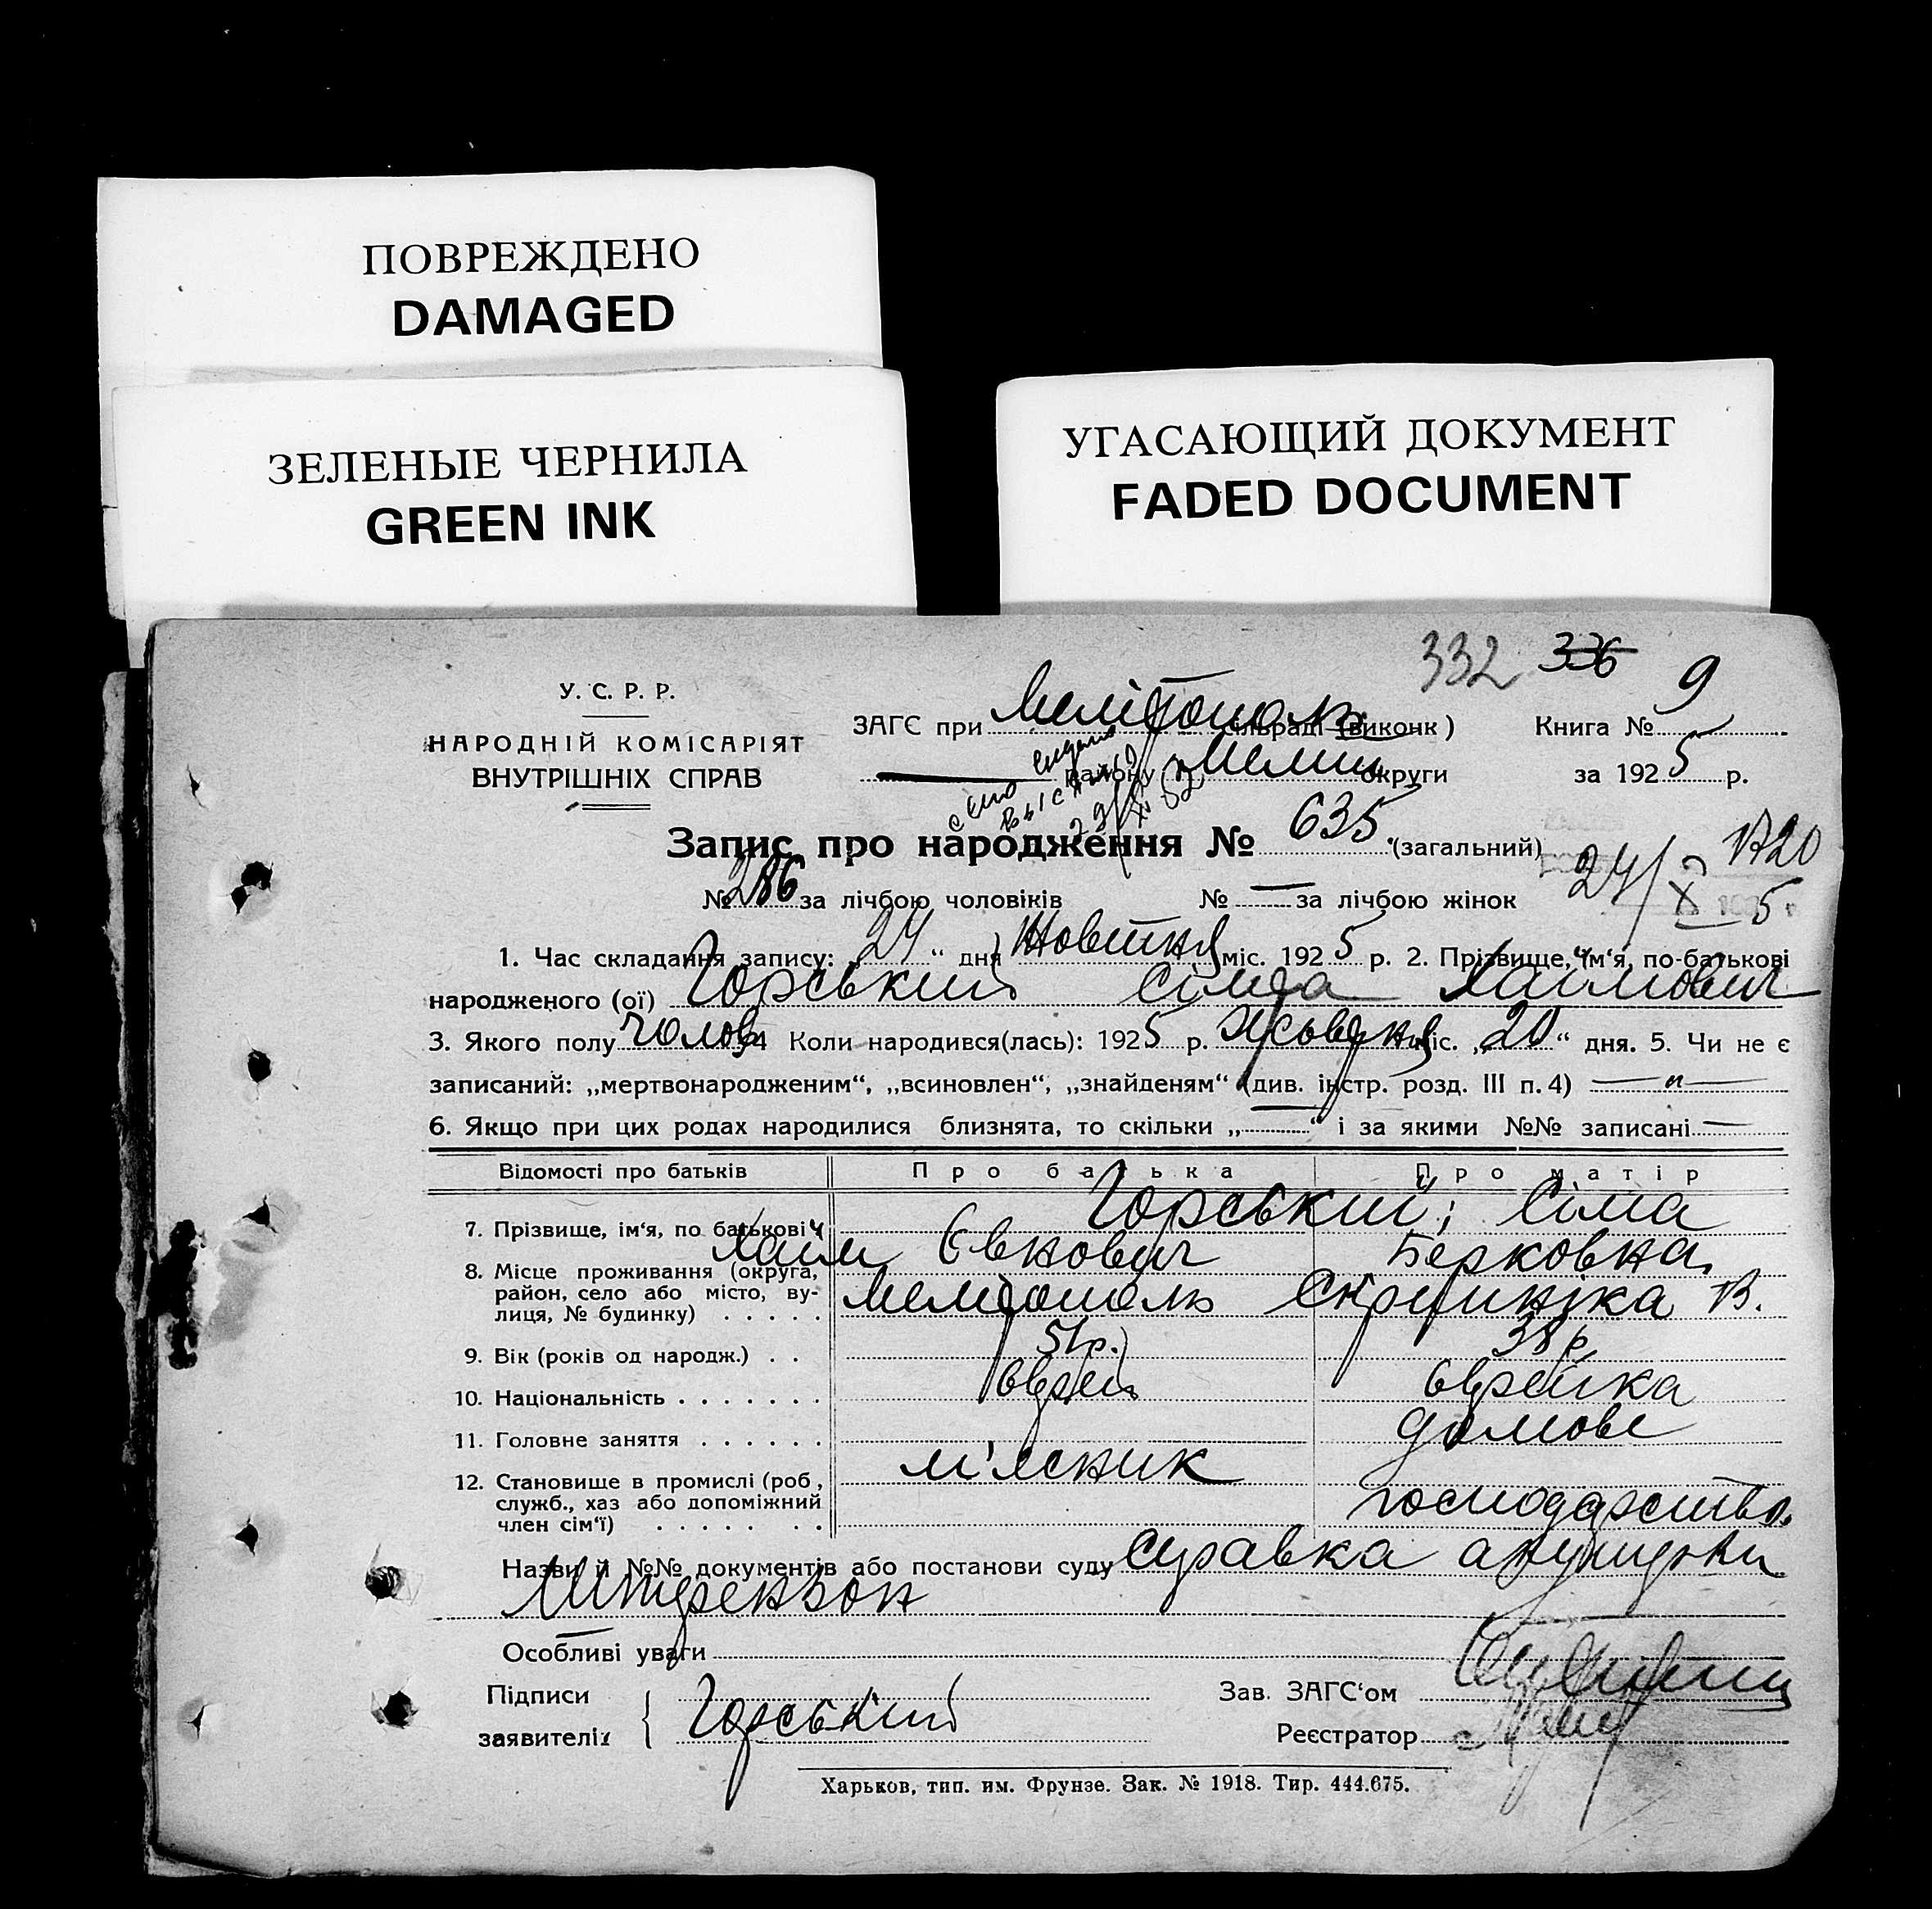 ПОВРЕЖДЕНО
DAMAGED
ЗЕЛЕНЫЕ ЧЕРНИЛА
GREEN INK
УГАСАЮЩИЙ ДОКУМЕНТ
FADED DOCUMENT
332 336 9
У. С. Р. Р.
НАРОДНІЙ КОМІСАРІЯТ
ВНУТРІШНІХ СПРАВ
ЗАГС при Мелітополь сільраді (виконк) Книга №
району Мелит округи за 1925 р.
Запис про народження № 635 (загальний)
№ 286 за лічбою чоловіків № — за лічбою жінок 24/X 5
1. Час складання запису: „24“ дня Жовтня міс. 1925 р. 2. Прізвище, ім‘я, по-батькові
народженого (ої) Горський Хаимович
3. Якого полу чолов 4 Коли народився(лась): 1925 р. Жовтня міс. „20“ дня. 5. Чи не є
записаний: „мертвонародженим“, „всиновлен“, „знайденям“ (див. інстр. розд. III п. 4) — „ —
6. Якщо при цих родах народилися близнята, то скільки „—“ і за якими №№ записані —
Відомості про батьків Про батька Про матір
7. Прізвище, ім‘я, по батькові Горський; Сіма
Хаим Євнович Берковна
8. Місце проживання (округа, район, село або місто, вулиця, № будинку) Мелітополь 13.
9. Вік (років од народж.) 51р. 38 р.
10. Національність Єврей Єврейка
11. Головне заняття домове
м'ясник
12. Становище в промислі (роб, служб., хаз або допоміжний член сім‘ї) господарство.
Назви й №№ документів або постанови суду справка акушерки
Особливі уваги —
Підписи
заявителів Горський
Зав. ЗАГС‘ом
Реєстратор
Харьков, тип. им. Фрунзе. Зак. № 1918. Тир. 444.675.